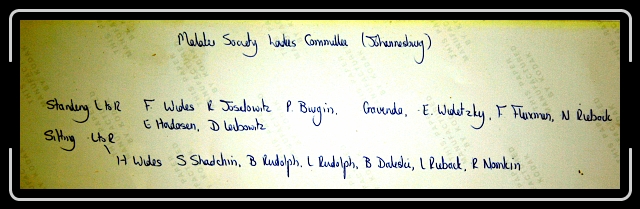 Malater Society Ladies Committee (Johannesburg)
Standing L to R F. Wides R Joselowitz P. Burgin, Gravenda, E. Widetzky, F Fluxman, N Rieback
E Hadasen, D Leibowitz
Sitting L to R
H Wides S Shadchin, B Rudolph, L Rudolph, B Daleski, L Ruback, R Namkin